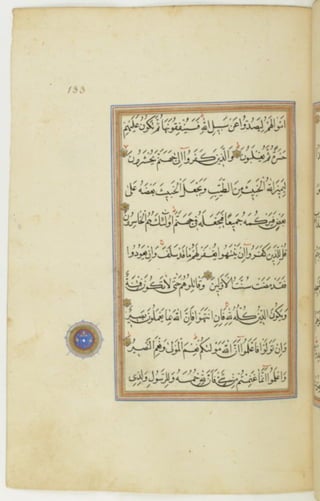 133
اموالهم ليصدوا عن سبيل الله فسينفقونها ثم تكون عليهم
حسرة ثم يغلبون والذين كفروا الى جهنم يحشرون
ليميز الله الخبيث من الطيب ويجعل الخبيث بعضه على
بعض فيركمه جميعا فيجعله في جهنم اولئك هم الخاسرون
قل للذين كفروا ان ينتهوا يغفر لهم ما قد سلف وان يعودوا
فقد مضت سنت الاولين وقاتلوهم حتى لا تكون فتنة
ويكون الدين كله لله فان انتهوا فان الله بما يعملون بصير
وان تولوا فاعلموا ان الله موليكم نعم المولى ونعم النصير
واعلموا انما غنمتم من شيء فان لله خمسه وللرسول ولذي